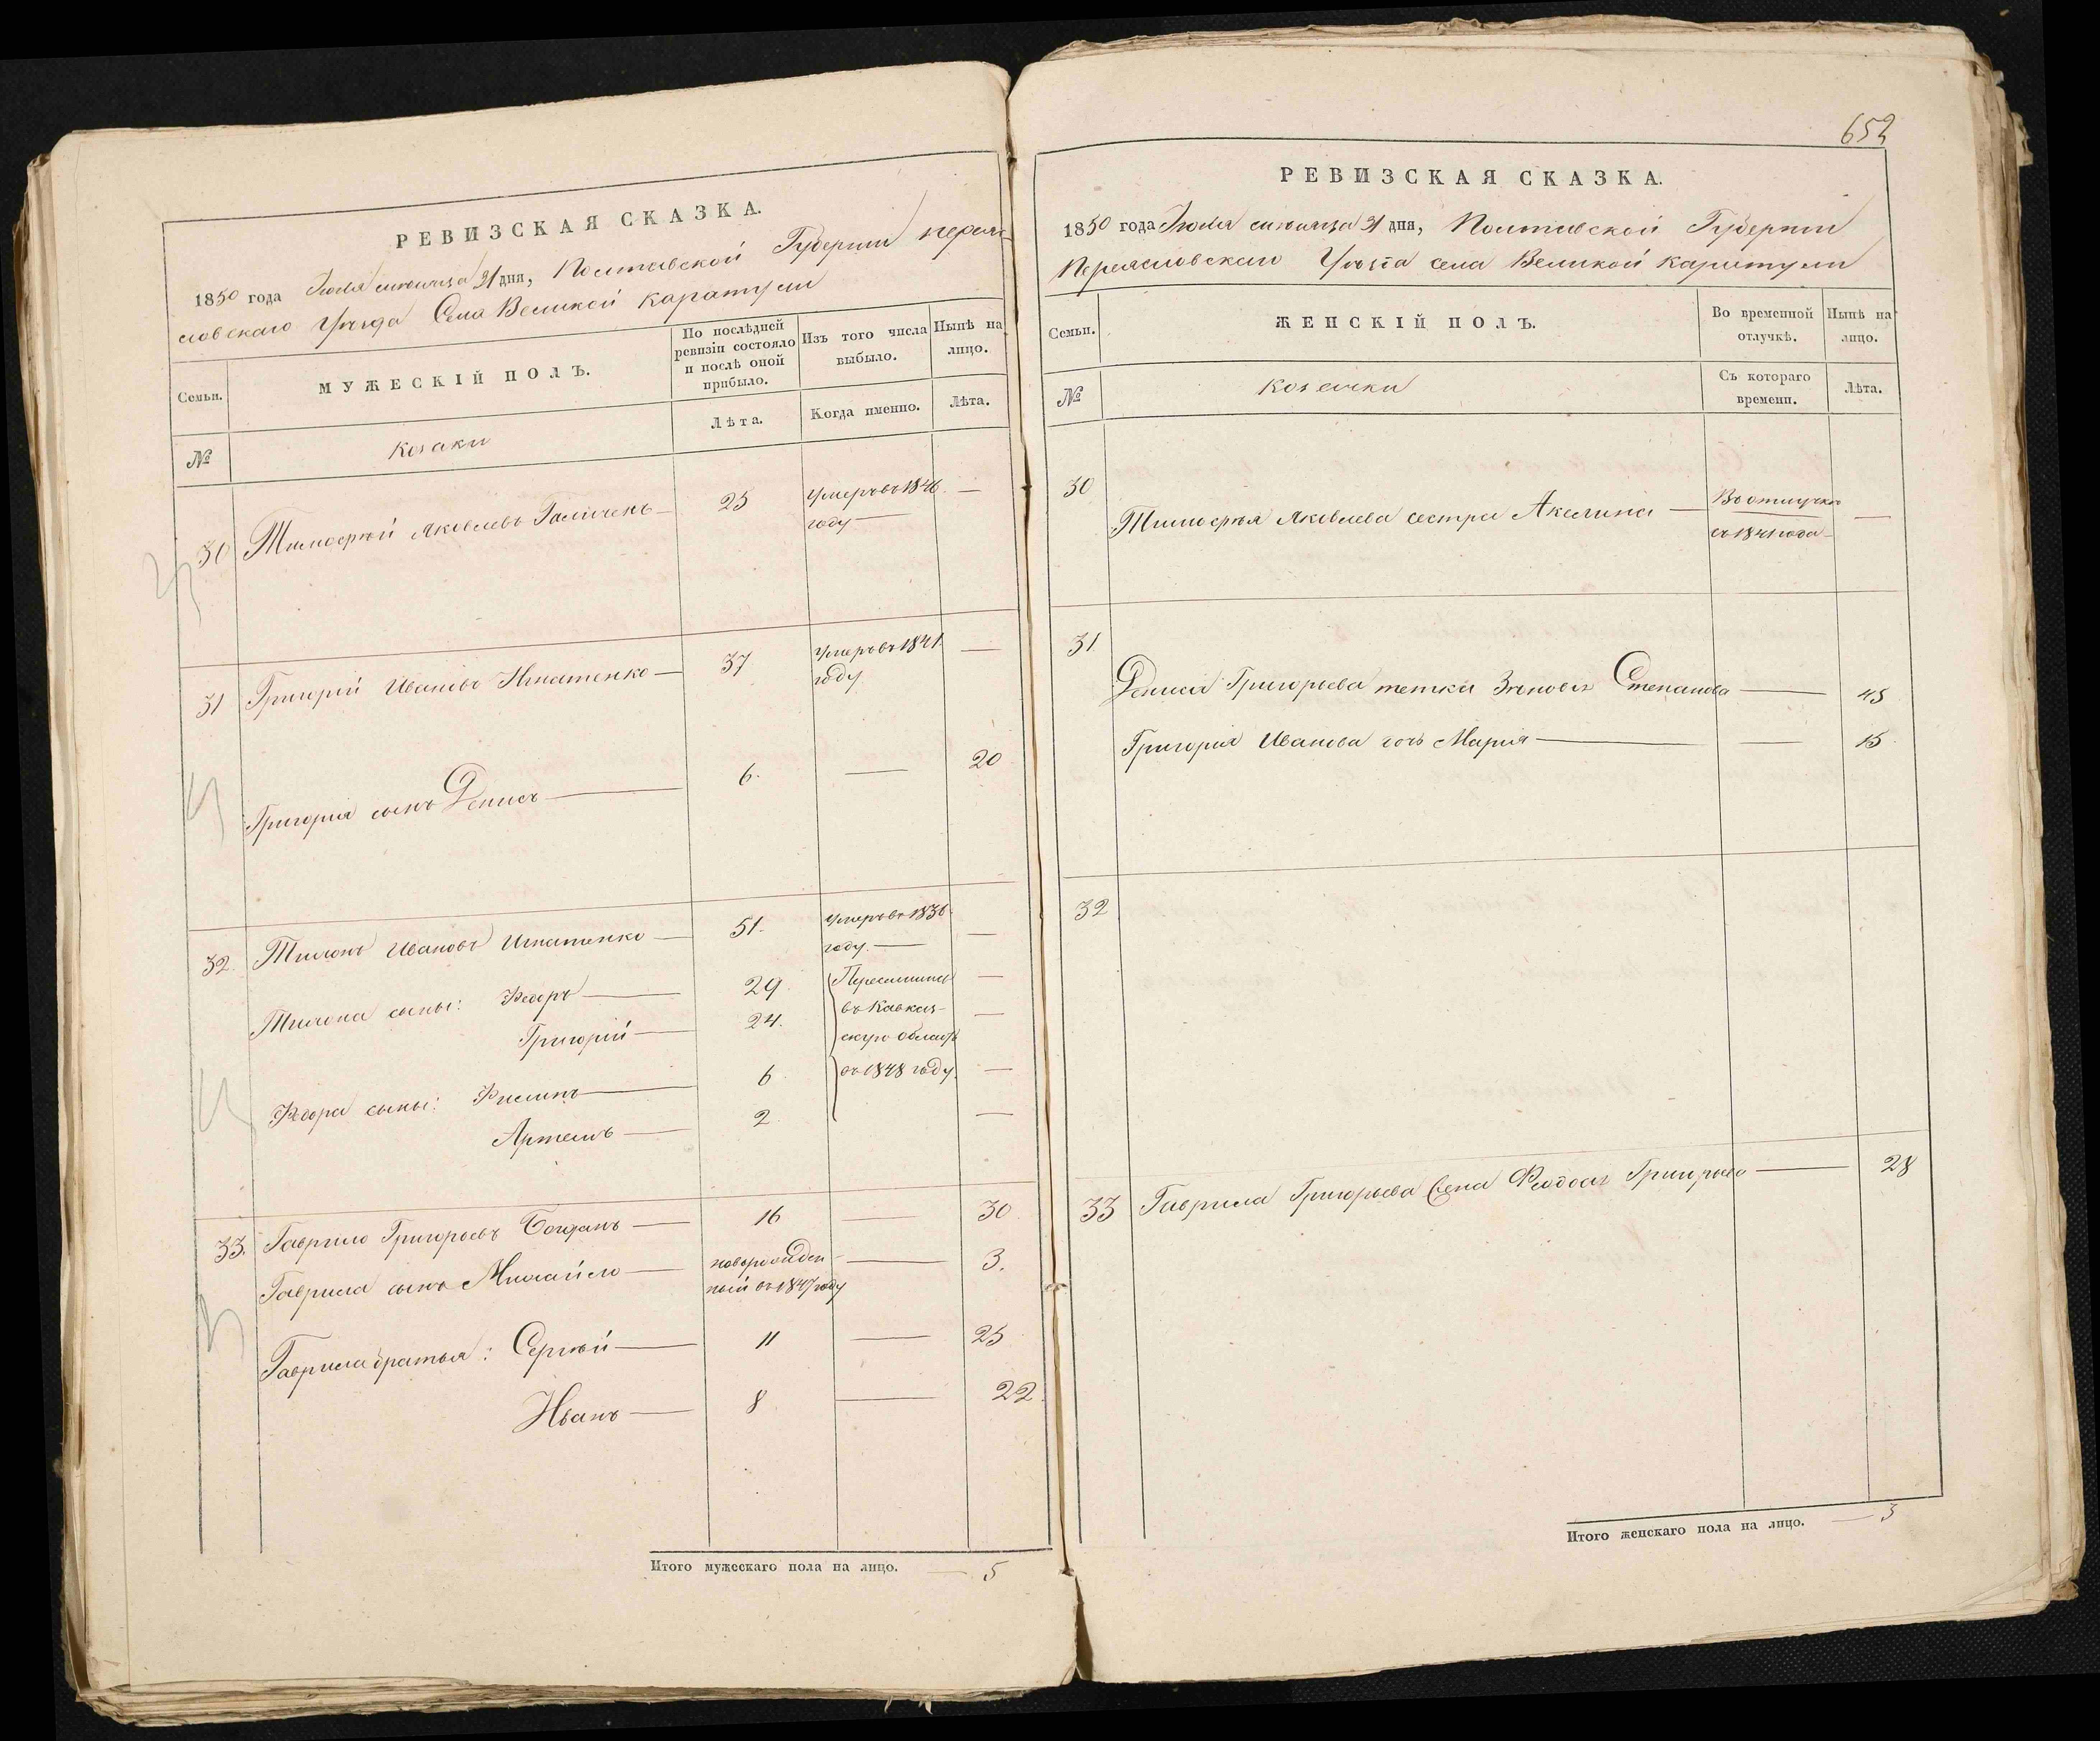 РЕВИЗСКАЯ СКАЗКА.
1850 года Июля месяца 31 дня, Полтавской Губернии Переяс-
ловскаго Уѣзда Села Великой Каратули
Семьи.
МУЖЕСКІЙ ПОЛЪ.
По послѣдней ревизіи состояло и послѣ оной прибыло.
Изъ того числа выбыло.
Нынѣ на лицо.
№
козаки
Лѣта.
Когда именно.
Лѣта.
30 Тимофѣй Яковлевъ 25 Умеръ въ 1846 —
году
31 Григорій Ивановъ Игнатенко 37 Умеръ въ 1841 —
году
Григорія сынъ Денисъ 6. — 20
32. Тихонъ Ивановъ Игнатенко 51. умеръ въ 1836 —
году.
Тихона сыны: Федоръ 29. Переселились —
въ Кавказ-
Григорій 24. скую область —
Федора сыны: Филипъ 6 въ 1848 году. —
Артемъ 2 —
33. Гаврило Григорьевъ Богданъ 16 — 30
Гаврила сынъ Михайло новорожден- — 3.
ный въ 1847 году
Гаврила братья: Сергѣй 11 — 25
Иванъ 8 — 22.
Итого мужескаго пола на лицо. — 5
652
РЕВИЗСКАЯ СКАЗКА.
1850 года Июля месяца 31 дня, Полтавской Губерніи
Переясловскаго Уѣзда села Великой Каратули
Семьи.
ЖЕНСКІЙ ПОЛЪ.
Во временной отлучкѣ.
Нынѣ на лицо.
№
козачки
Съ котораго времени.
Лѣта.
30 Тимофѣя Яковлева сестра Акилина — Въ отлучкѣ —
съ 1841 года
31 Дениса Григорьева тетка Степанова — 45
Григорія Иванова дочь Марія — 15
32
33 Гаврила Григорьева жена Григорьева — 28
Итого женскаго пола на лицо. — 3